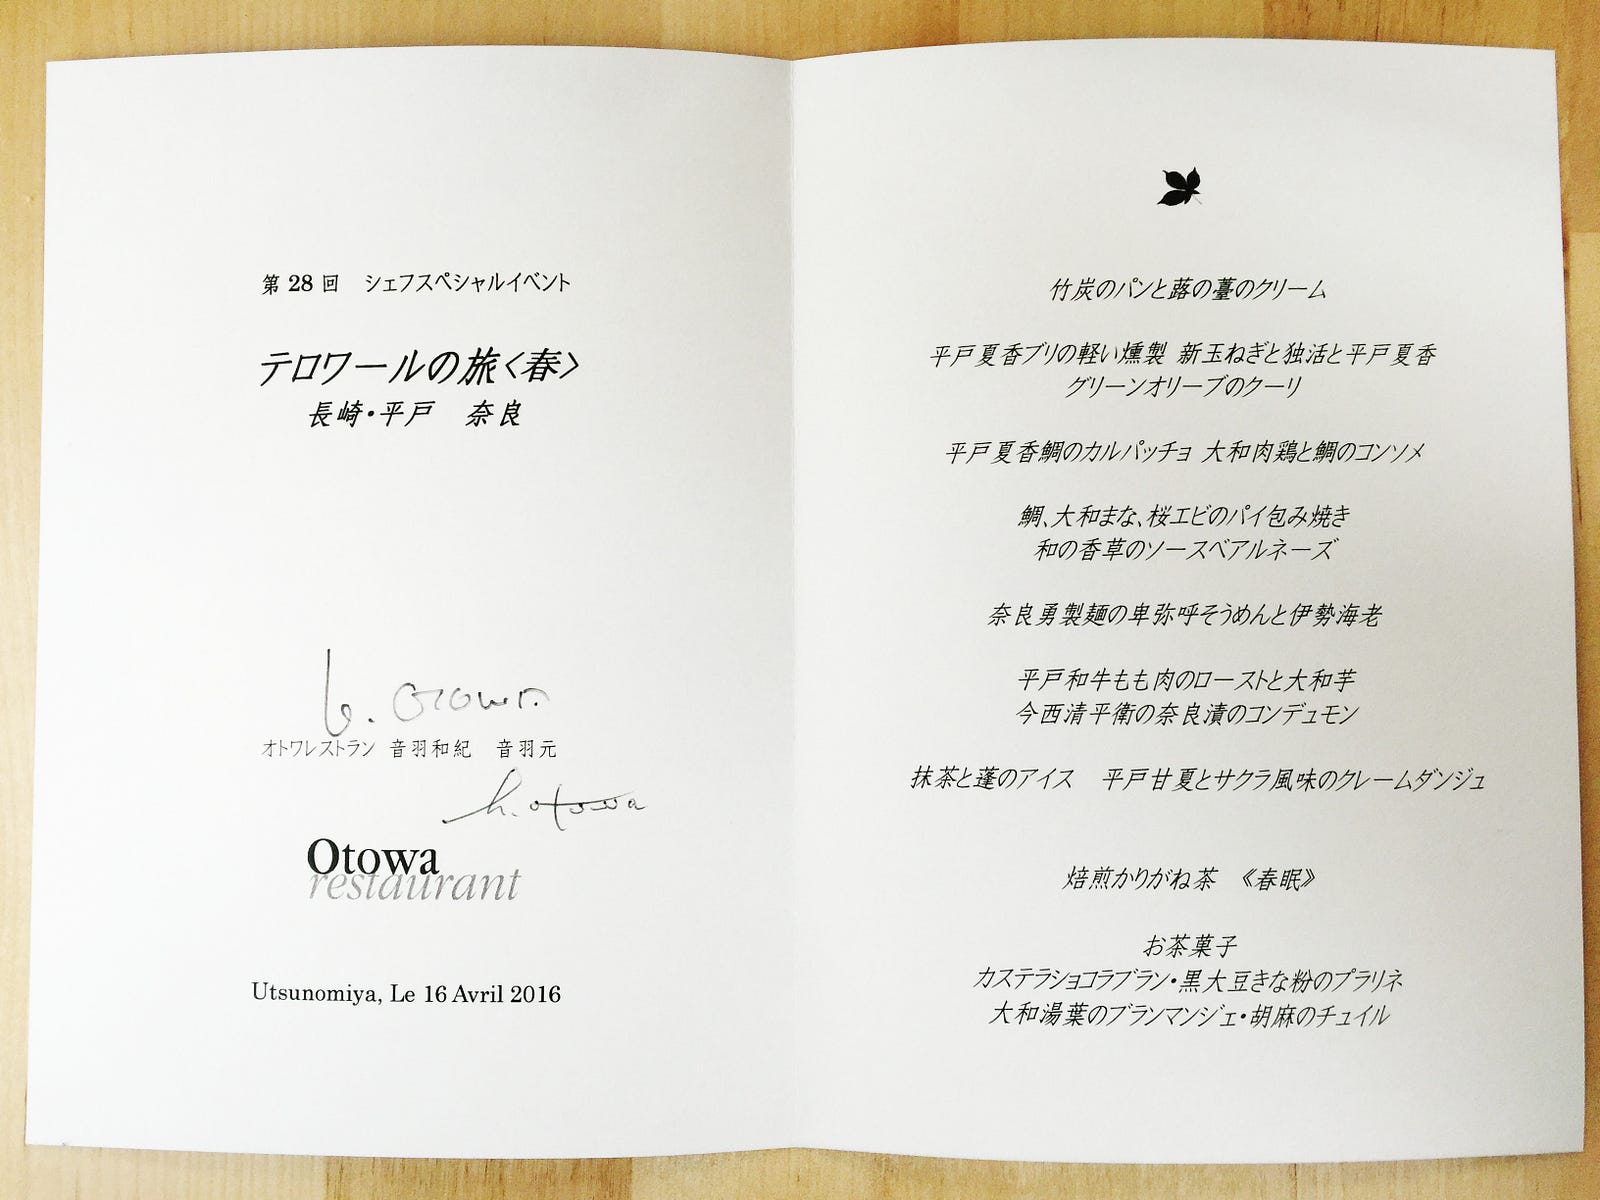 第 28 回　シェフスペシャルイベント
テロワールの旅〈春〉
長崎・平戸　奈良
オトワレストラン　音羽和紀　音羽元
h. otowa
Otowa
restaurant
Utsunomiya, Le 16 Avril 2016
竹炭のパンと蕗の薹のクリーム
平戸夏香ブリの軽い燻製 新玉ねぎと独活と平戸夏香
グリーンオリーブのクーリ
平戸夏香鯛のカルパッチョ 大和肉鶏と鯛のコンソメ
鯛、大和まな、桜エビのパイ包み焼き
和の香草のソースベアルネーズ
奈良勇製麺の卑弥呼そうめんと伊勢海老
平戸和牛もも肉のローストと大和芋
今西清平衛の奈良漬のコンデュモン
抹茶と蓬のアイス　平戸甘夏とサクラ風味のクレームダンジュ
焙煎かりがね茶　《春眠》
お茶菓子
カステラショコラブラン・黒大豆きな粉のプラリネ
大和湯葉のブランマンジェ・胡麻のチュイル